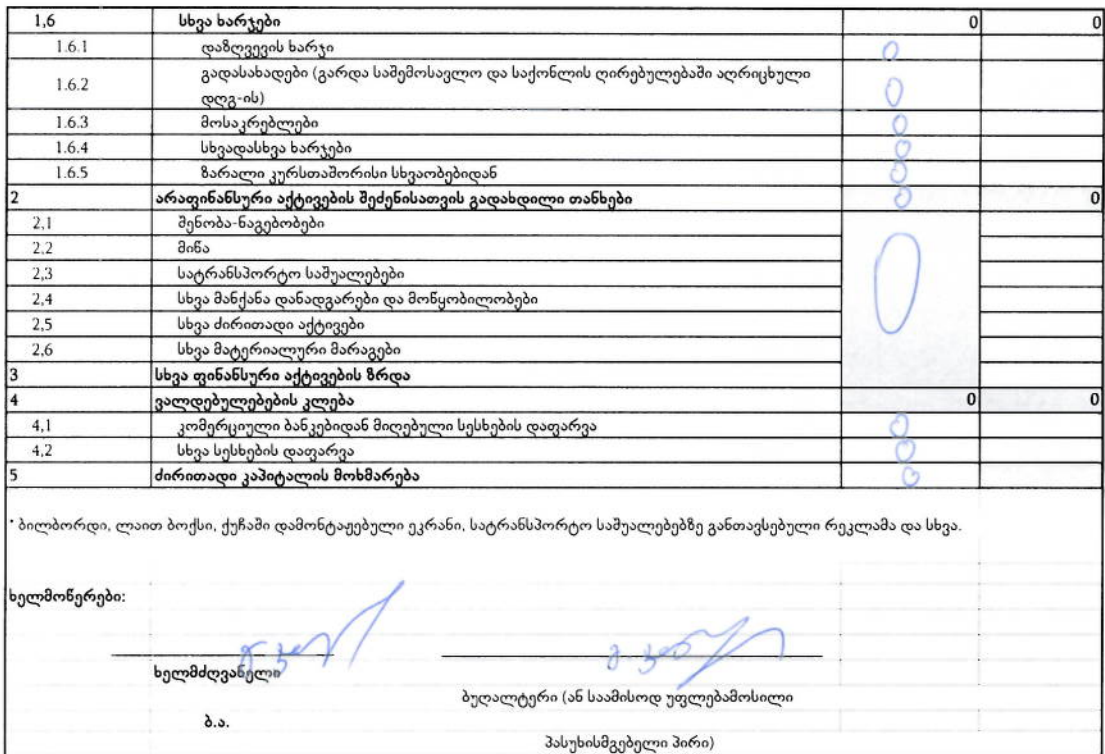 1,6 სხვა ხარჯები 0 0
1.6.1 დაზღვევის ხარჯი 0
1.6.2 გადასახადები (გარდა საშემოსავლო და საქონლის ღირებულებაში აღრიცხული
დღგ-ის) 0
1.6.3 მოსაკრებლები 0
1.6.4 სხვადასხვა ხარჯები 0
1.6.5 ზარალი კურსთაშორისი სხვაობებიდან 0
2 არაფინანსური აქტივების შეძენისათვის გადახდილი თანხები 0 0
2,1 შენობა-ნაგებობები
2,2 მიწა
2,3 სატრანსპორტო საშუალებები 0
2,4 სხვა მანქანა დანადგარები და მოწყობილობები
2,5 სხვა ძირითადი აქტივები
2,6 სხვა მატერიალური მარაგები
3 სხვა ფინანსური აქტივების ზრდა
4 ვალდებულებების კლება 0 0
4,1 კომერციული ბანკებიდან მიღებული სესხების დაფარვა 0
4,2 სხვა სესხების დაფარვა 0
5 ძირითადი კაპიტალის მოხმარება 0
* ბილბორდი, ლაით ბოქსი, ქუჩაში დამონტაჟებული ეკრანი, სატრანსპორტო საშუალებებზე განთავსებული რეკლამა და სხვა.
ხელმოწერები:
ხელმძღვანელი
ბუღალტერი (ან საამისოდ უფლებამოსილი
ბ.ა.
პასუხისმგებელი პირი)